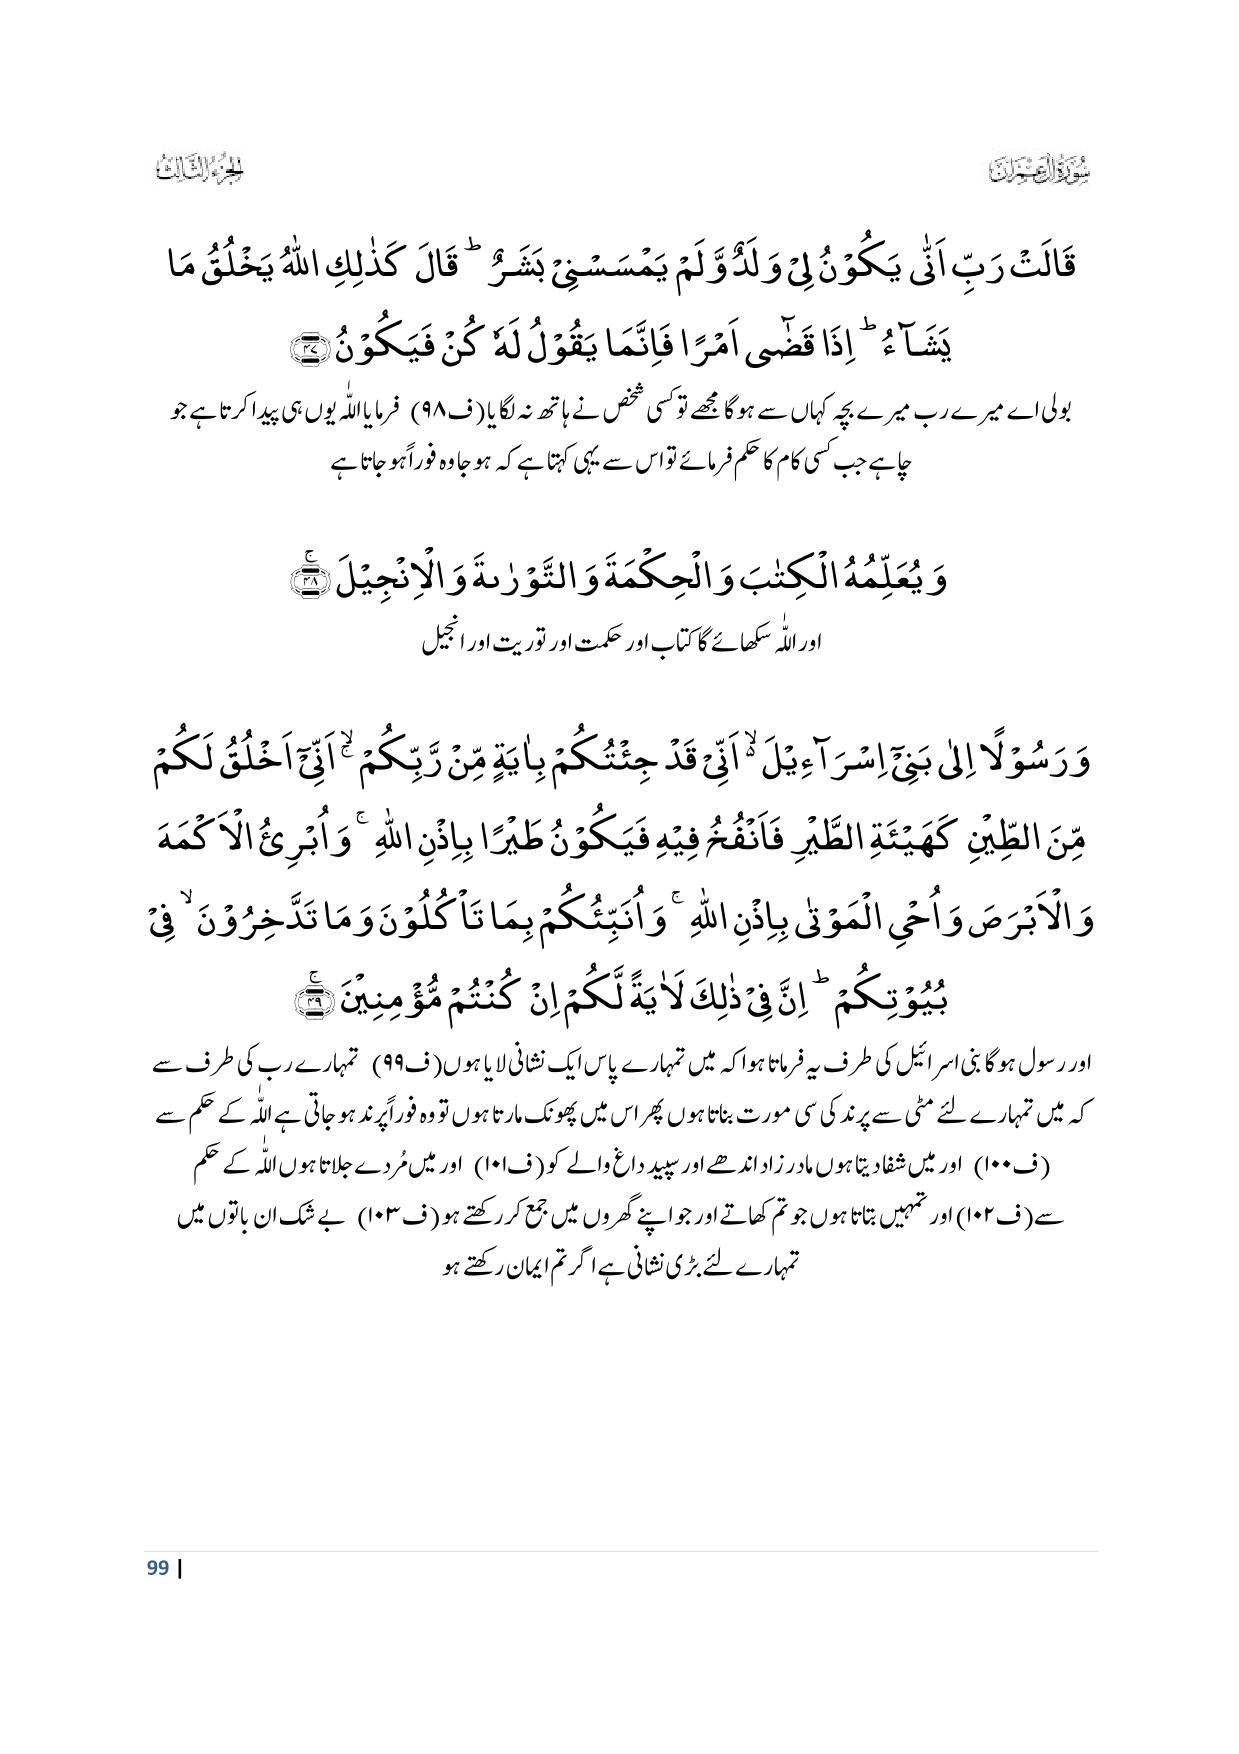 سُوْرَةُ اٰلِ عِمْرَان
الجزء الثالث
قَالَتْ رَبِّ اَنّٰى يَكُوْنُ لِىْ وَلَدٌ وَّلَمْ يَمْسَسْنِىْ بَشَرٌ ؕ قَالَ كَذٰلِكِ اللّٰهُ يَخْلُقُ مَا
يَشَآءُ ؕ اِذَا قَضٰۤى اَمْرًا فَاِنَّمَا يَقُوْلُ لَهٗ كُنْ فَيَكُوْنُ ﴿۴۷﴾
بولی اے میرے رب میرے بچہ کہاں سے ہوگا مجھے تو کسی شخص نے ہاتھ نہ لگایا (ف۹۸) فرمایا اللّٰہ یوں ہی پیدا کرتا ہے جو
چاہے جب کسی کام کا حکم فرمائے تو اس سے یہی کہتا ہے کہ ہو جا وہ فوراً ہو جاتا ہے
وَ يُعَلِّمُهُ الْكِتٰبَ وَ الْحِكْمَةَ وَ التَّوْرٰىةَ وَ الْاِنْجِيْلَ ﴿ۚ۴۸﴾
اور اللّٰہ سکھائے گا کتاب اور حکمت اور توریت اور انجیل
وَ رَسُوْلًا اِلٰى بَنِىْۤ اِسْرَآءِيْلَ ۬ۙ اَنِّىْ قَدْ جِئْتُكُمْ بِاٰيَةٍ مِّنْ رَّبِّكُمْ ۙۚ اَنِّىْۤ اَخْلُقُ لَكُمْ
مِّنَ الطِّيْنِ كَهَيْئَةِ الطَّيْرِ فَاَنْفُخُ فِيْهِ فَيَكُوْنُ طَيْرًۢا بِاِذْنِ اللّٰهِ ۚ وَ اُبْرِئُ الْاَكْمَهَ
وَ الْاَبْرَصَ وَ اُحْىِ الْمَوْتٰى بِاِذْنِ اللّٰهِ ۚ وَ اُنَبِّئُكُمْ بِمَا تَاْكُلُوْنَ وَ مَا تَدَّخِرُوْنَ ۙ فِىْ
بُيُوْتِكُمْ ؕ اِنَّ فِىْ ذٰلِكَ لَاٰيَةً لَّكُمْ اِنْ كُنْتُمْ مُّؤْمِنِيْنَ ﴿ۚ۴۹﴾
اور رسول ہوگا بنی اسرائیل کی طرف یہ فرماتا ہوا کہ میں تمہارے پاس ایک نشانی لایا ہوں (ف۹۹) تمہارے رب کی طرف سے
کہ میں تمہارے لئے مٹی سے پرند کی سی مورت بناتا ہوں پھر اس میں پھونک مارتا ہوں تو وہ فوراً پرند ہو جاتی ہے اللّٰہ کے حکم سے
(ف۱۰۰) اور میں شفا دیتا ہوں مادر زاد اندھے اور سپید داغ والے کو (ف۱۰۱) اور میں مُردے جلاتا ہوں اللّٰہ کے حکم
سے (ف۱۰۲) اور تمہیں بتاتا ہوں جو تم کھاتے اور جو اپنے گھروں میں جمع کر رکھتے ہو (ف۱۰۳) بے شک ان باتوں میں
تمہارے لئے بڑی نشانی ہے اگر تم ایمان رکھتے ہو
99 |